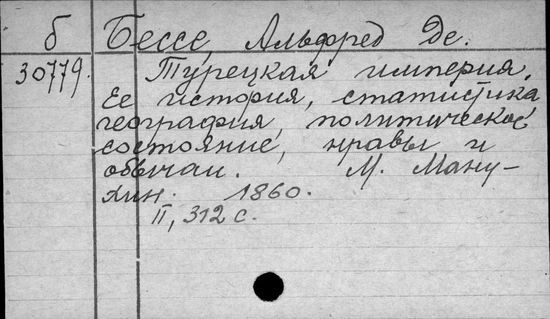 б Бессе, Альфред Де.
30779. Турецкая империя.
Ее история, статистика
география, политическое
состояние, нравы и
обычаи. М. Ману-
хин. 1860.
II, 312 с.